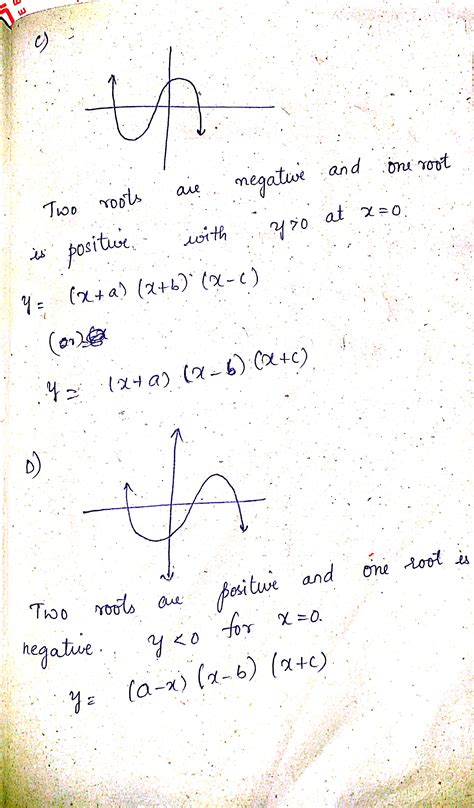 c)
Two roots are negative and one root
is positive. with y>0 at x=0.
y= (x+a) (x+b) (x-c)
(or)
y= (x+a) (x-b) (x+c)
D)
Two roots are positive and one root is
negative. y<0 for x=0.
y= (a-x) (x-b) (x+c)